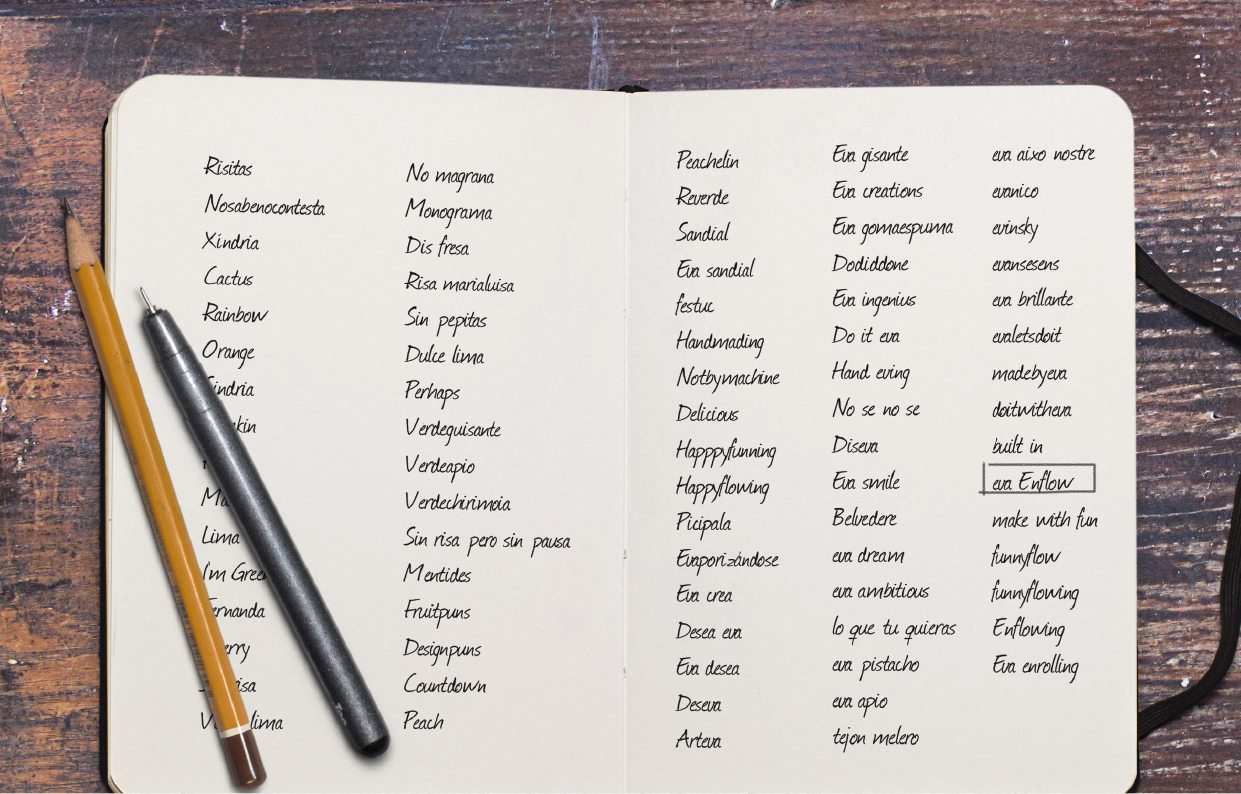 Risitas
Nosabenocontesta
Xíndria
Cactus
Rainbow
Orange
Lima
I'm Green
No magrana
Monograma
Dis fresa
Risa marialuisa
Sin pepitas
Dulce lima
Perhaps
Verdeguisante
Verdeapio
Verdechirimoia
Sin risa pero sin pausa
Mentides
Fruitpuns
Designpuns
Countdown
Peach
Peachelin
Reverde
Sandial
Eva sandial
festuc
Handmading
Notbymachine
Delicious
Happpyfunning
Happyflowing
Picipala
Evaporizándose
Eva crea
Desea eva
Eva desea
Deseva
Arteva
Eva gisante
Eva creations
Eva gomaespuma
Dodiddone
Eva ingenius
Do it eva
Hand eving
No se no se
Diseva
Eva smile
Belvedere
eva dream
eva ambitious
lo que tu quieras
eva pistacho
eva apio
tejon melero
eva aixo nostre
evanico
evinsky
evansesens
eva brillante
evaletsdoit
madebyeva
doitwitheva
built in
eva Enflow
make with fun
funnyflow
funnyflowing
Enflowing
Eva enrolling